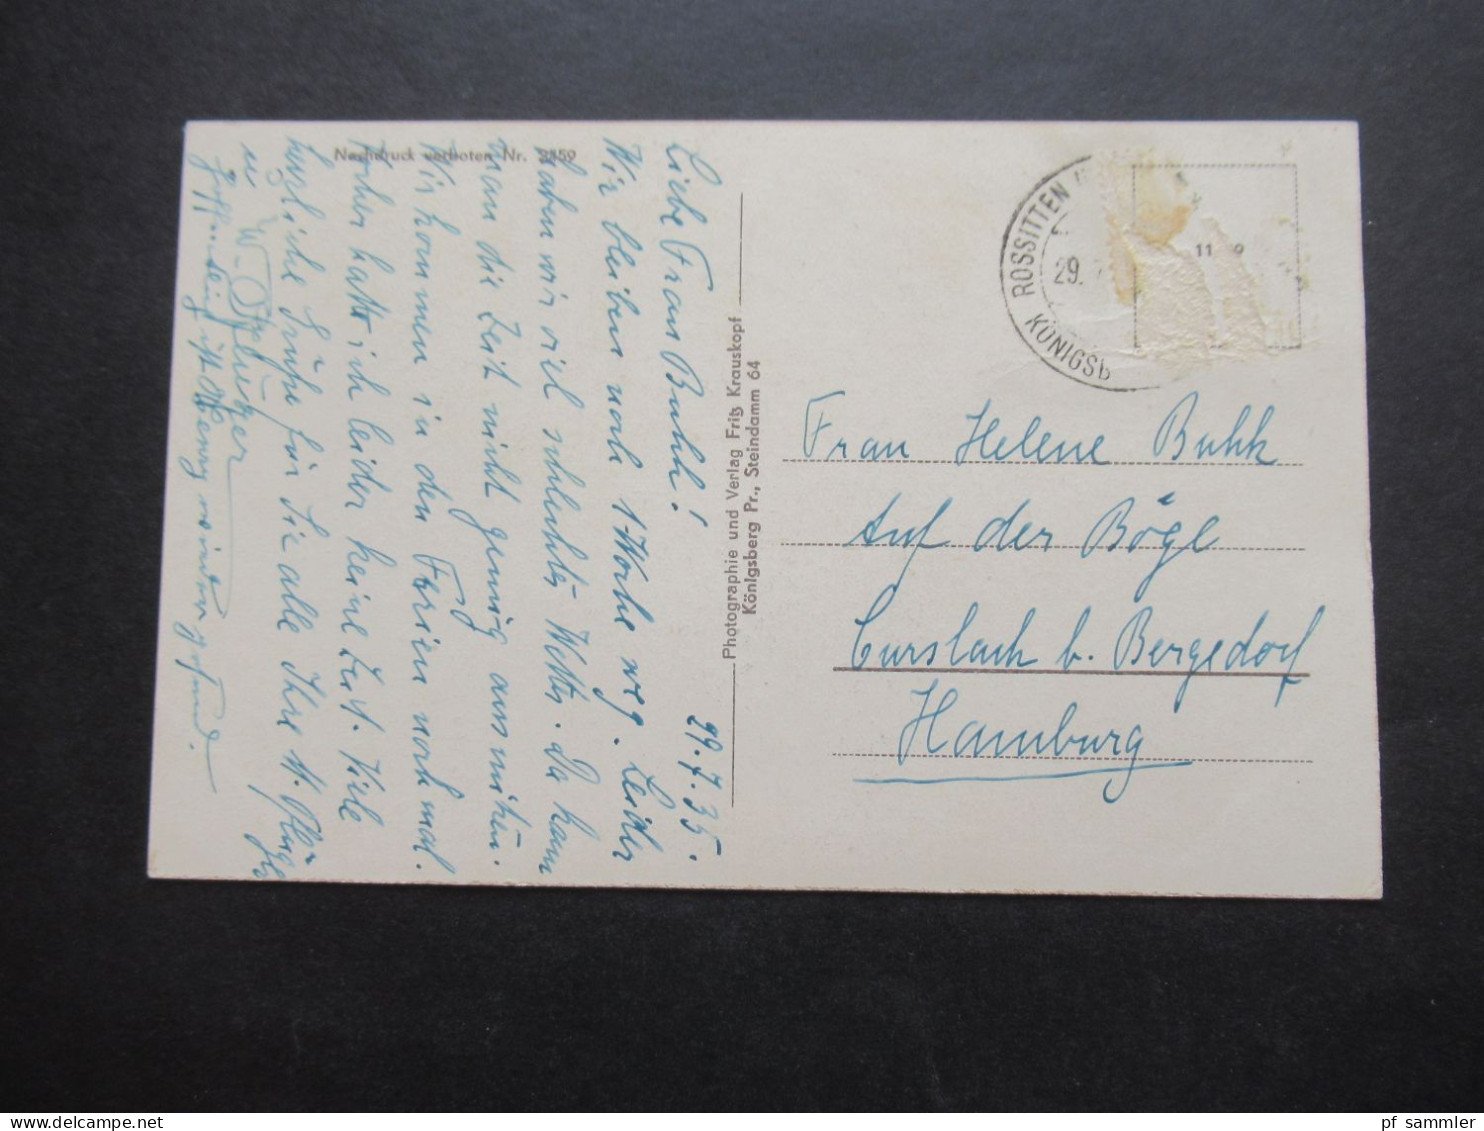 Nachdruck verboten Nr. 3559
29.7.35.
Liebe Frau Buhk!
Wir bleiben noch 1 Woche weg. Leider
haben wir viel schlechtes Wetter. Da kann
man die Zeit nicht genug ausnützen.
Wir kommen in den Ferien noch mal.
Vorher hatte ich leider keine Zeit. Viele
herzliche Grüße für Sie alle Ihre
Hoffentlich ist Henry wieder gesund.
Photographie und Verlag Fritz Krauskopf
Königsberg Pr., Steindamm 64
ROSSITTEN
29.
KÖNIGSB
11
Frau Helene Buhk
Auf der Böge
Curslack b. Bergedorf
Hamburg
pf sammler